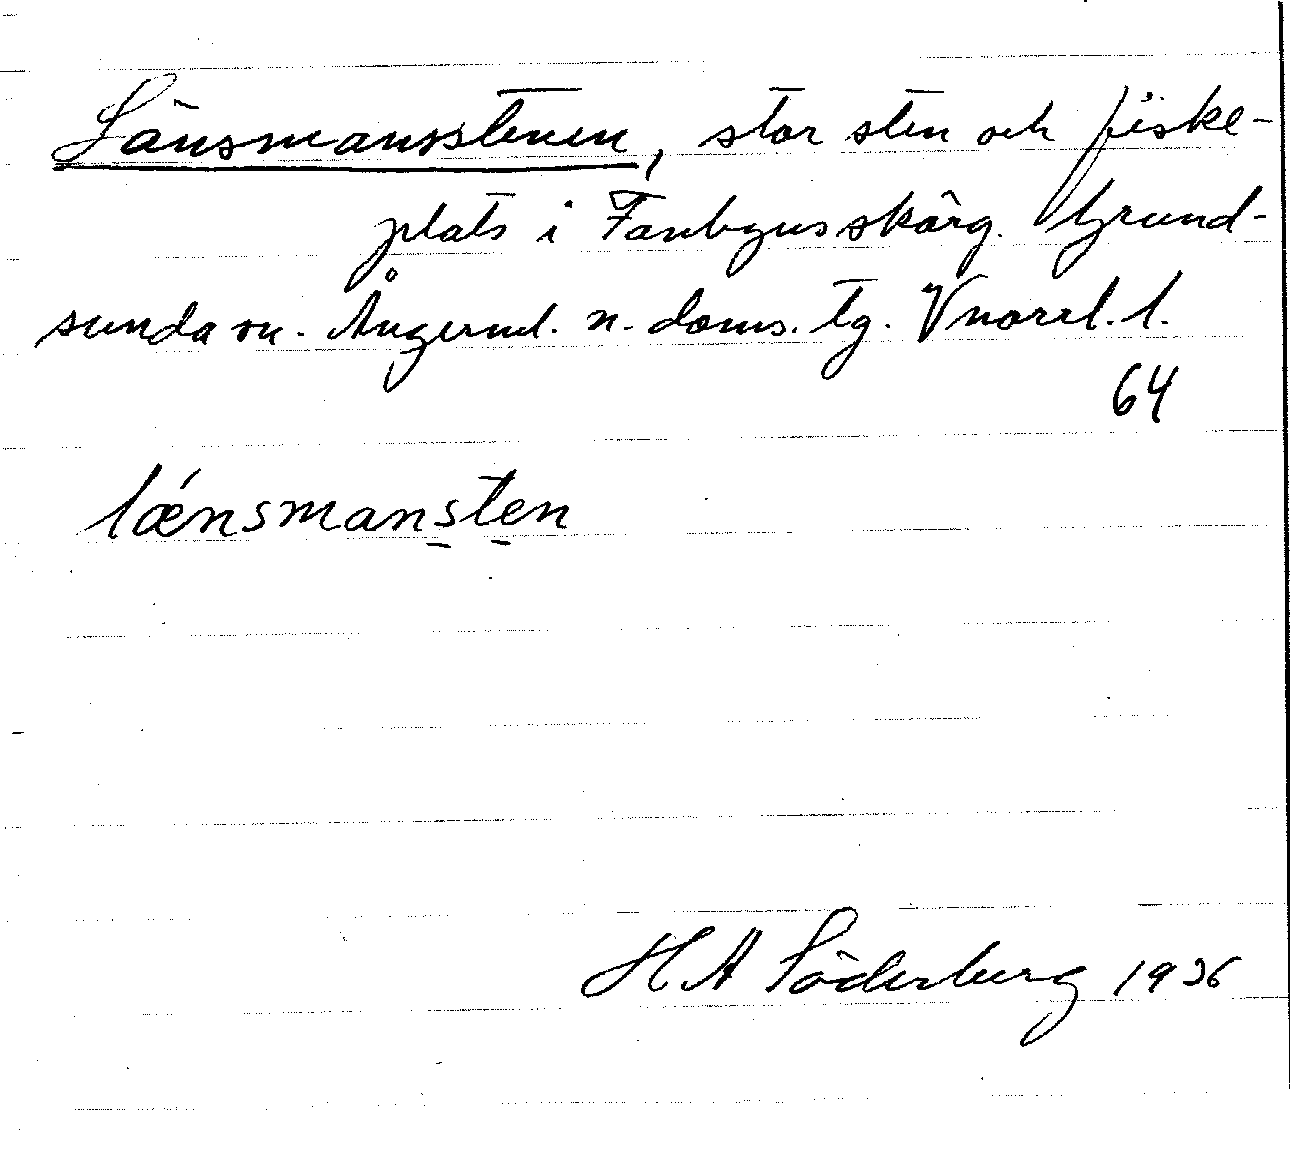 Länsmansstenen, stor sten och fiske-
plats i Fanbyns skärg. Grund-
sunda sn. Ångerml. n. doms. tg. Vnorrl. l.
64
lǽnsmansten
H A Söderberg 1936